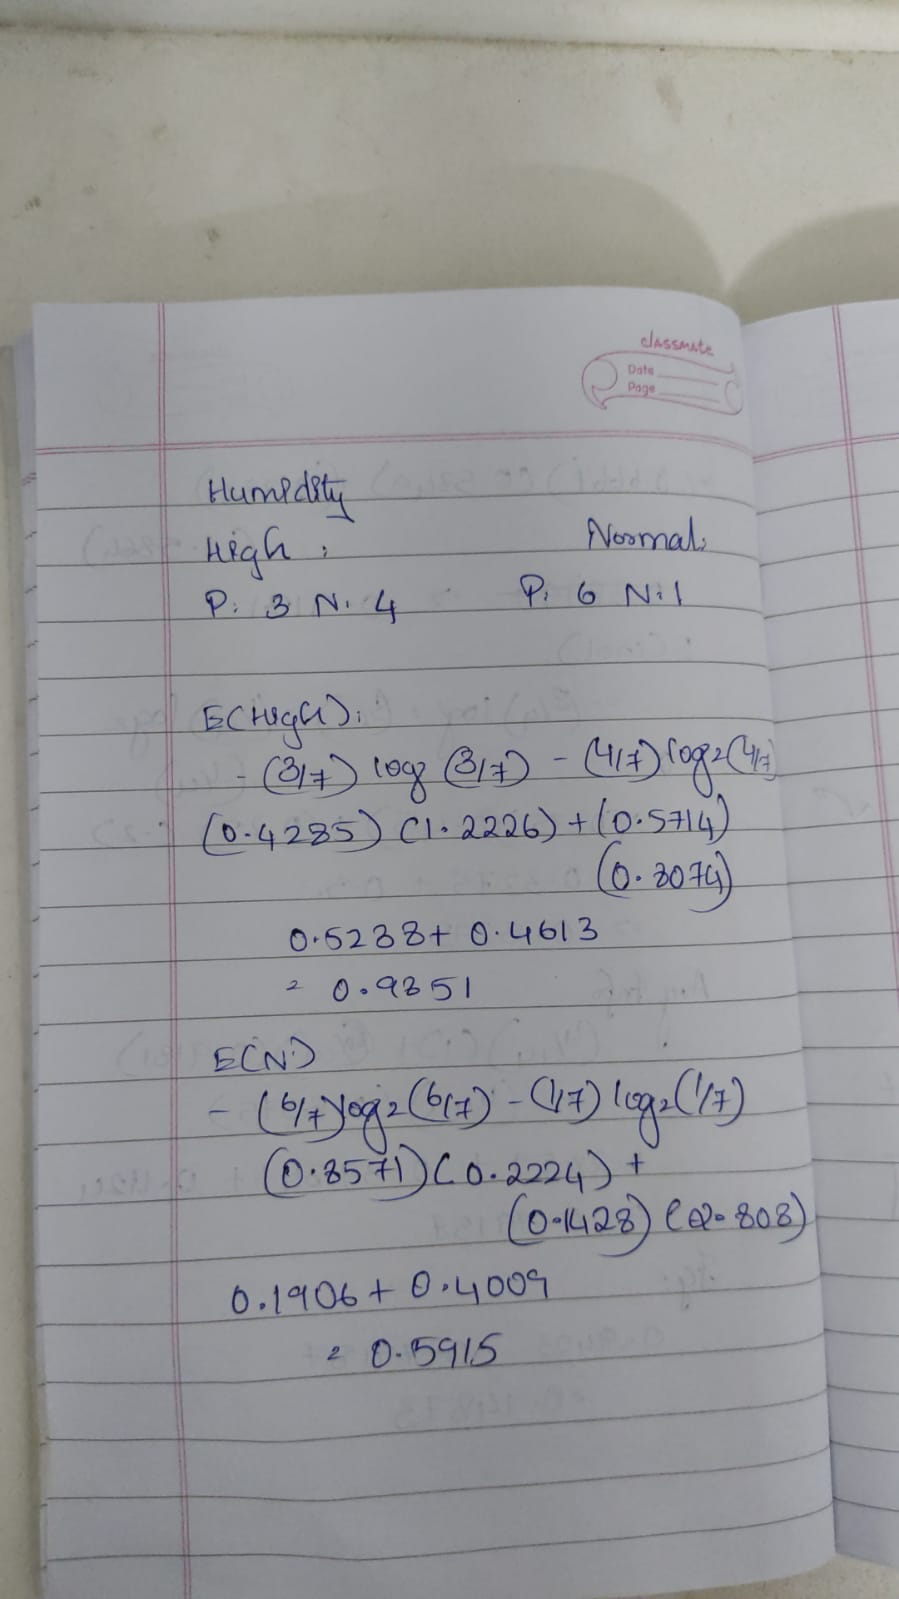 classmate
Date
Page
Humidity
High : Normal:
P: 3 N: 4 P: 6 N: 1
E(High):
- (3/7) log2 (3/7) - (4/7) log2 (4/7)
(0.4285) (1.2226) + (0.5714)
(0.8074)
0.5238 + 0.4613
= 0.9851
E(N)
- (6/7) log2 (6/7) - (1/7) log2 (1/7)
(0.8571) (0.2224) +
(0.1428) (2.808)
0.1906 + 0.4009
= 0.5915